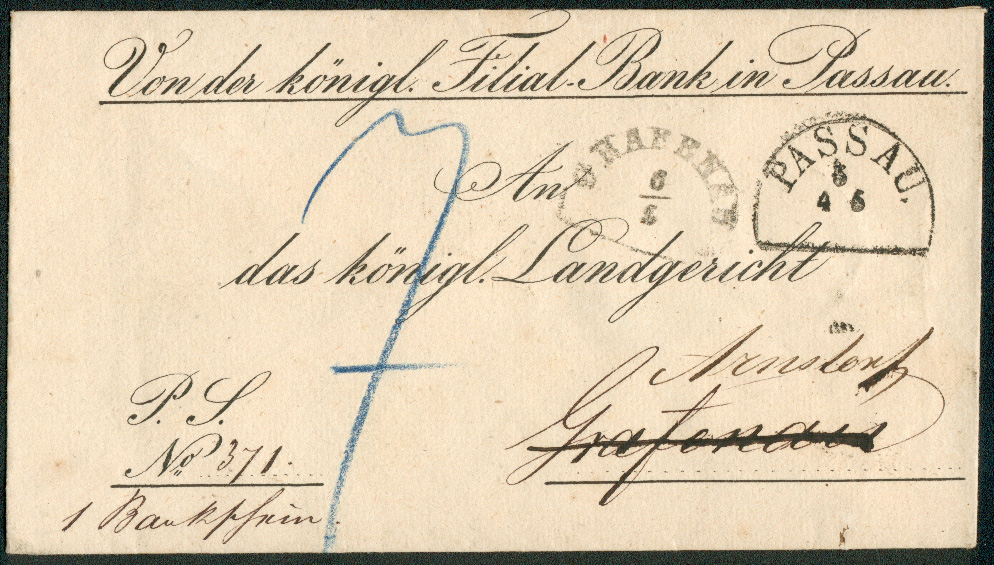 Von der königl. Filial-Bank in Passau.
An
GRAFENAU
6
5
PASSAU.
5
4 5
das königl. Landgericht
Arnstorf
Grafenau
P. S.
No 371.
1 Bankschein.
7